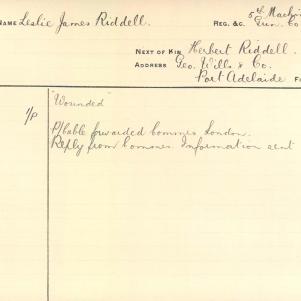 NAME Leslie James Riddell. REG. &C. 5th Machi
Gun. Co
NEXT OF KIN Herbert Riddell.
ADDRESS Geo. Wills & Co.
Port Adelaide
"Wounded"
P/Cable forwarded Commrs London.
Reply from Commrs. Information sent